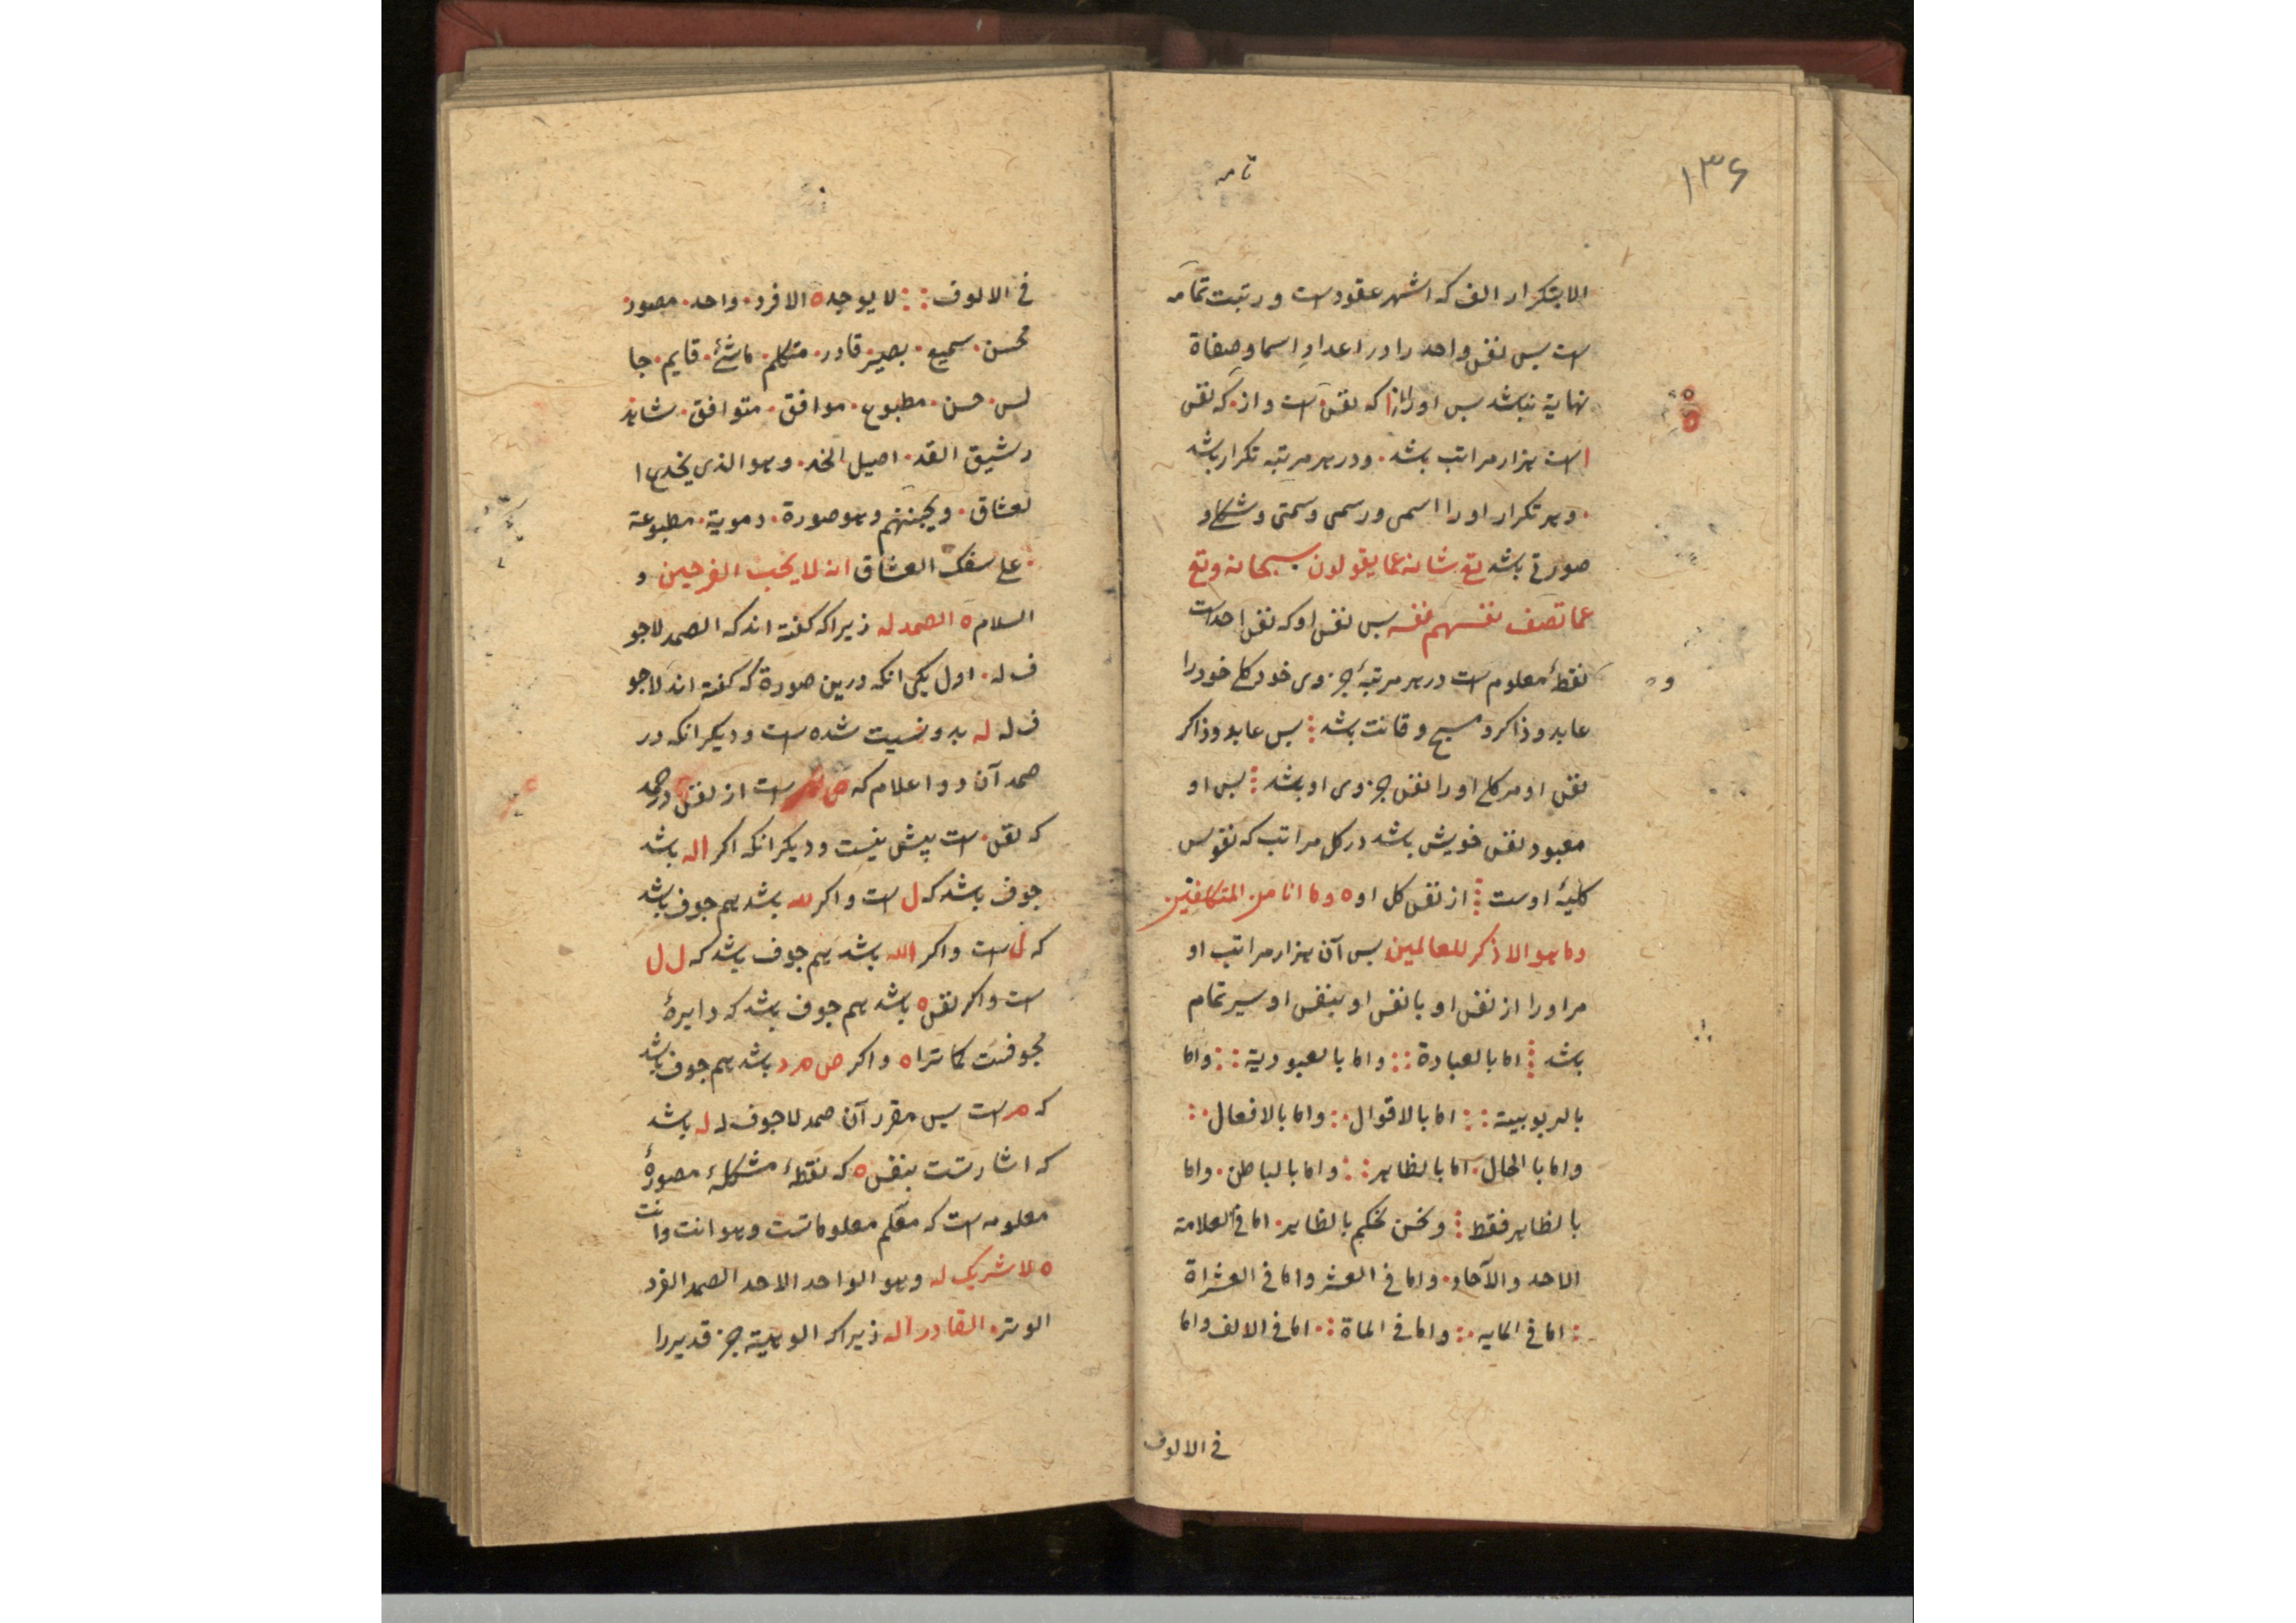 ۱۳۶
تامه
الابتکرار الف که اشهر عقودست و رتبت تمامه
است پس نفس واحد را در اعداد اسما و صفاة
نهایة نباشد پس او را از ا که نقس است و از ۰ که نقس
ا است هزار مراتب باشد ۰ و در هر مرتبه تکرار باشد
۰ و هر تکرار او را اسمی و رسمی و سمتی و شکلی و
صورتی باشد تع شانه عما یقولون سبحانه و تع
عما تصف نفسهم نفسه پس نفس او که نفس احدست
نقطهٔ معلوم است در هر مرتبهٔ جزوی خود کلی خود را
عابد و ذاکر و مسبح و قانت باشد ⁝ پس عابد و ذاکر
نفس او مر کلی او را نفس جزوی او باشد ⁝ پس او
معبود نفس خویش باشد در کل مراتب که نفوس
کلیهٔ اوست ⁝ از نفس کل او ه وما انا من المتکلفین
وما هو الا ذکر للعالمین پس آن هزار مراتب او
مر او را از نفس او با نفس او بنفس او سیر تمام
باشد ⁝ اما بالعبادة :: واما بالعبودیة :: واما
بالربوبیة :: اما بالاقوال ∴ واما بالافعال ∴
واما با الحال ۰ اما بالظاهر :: واما بالباطن ۰ واما
بالظاهر فقط ⁝ ونحن نحکم بالظاهر ۰ اما فی العلامة
الاحد والآحاد ۰ واما فی العشر واما فی العشراة
: اما فی المایه ∴ واما فی الماة ∴ اما فی الالف واما
فی الالوف
فی الالوف :: لا یوجد ه الا فرد ۰ واحد ۰ مصور ۰
محسن ۰ سمیع ۰ بصیر ۰ قادر ۰ متکلم ۰ ماشئ ۰ قایم ۰ جا
لس ۰ حسن ۰ مطبوع ۰ موافق ۰ متوافق ۰ شاهد
رشیق القد ۰ اصیل الخد ۰ وهو الذی یخدع ا
لعشاق ۰ و یجننهم وهو صورة ۰ دمویة ۰ مطبوعة
۰ علی سفک العشاق انه لا یحب الفرحین و
السلام ه الصمد له زیرا که گفته اند که الصمد لاجو
ف له ۰ اول یکی انکه درین صورة که گفته اند لاجو
ف له له بدو نسبت شده است و دیکر انکه در
صمد آن دو اعلام که ص است از نفس د
که نقس ۰ است پیش نیست و دیکر انکه اکر اله باشد
جوف باشد که ل است و اکر لله باشد هم جوف باشد
که ل است و اکر الله باشد هم جوف باشد که ل ل
است و اکر نقس ه باشد هم جوف باشد که دایرهٔ
مجوفست کما تراه و اکر ص م د باشد هم جوف باشد
که م است پس مقرر آن صمد لاجوف له له باشد
که اشارتست بنفس ه که نقطهٔ مشکلهٔ مصورهٔ
معلومه است که معلم معلوماتست وهو انت وانت
ه لا شریک له وهو الواحد الاحد الصمد الفرد
الوتر ۰ القادر اله زیرا که الوهیة جز قدیر را